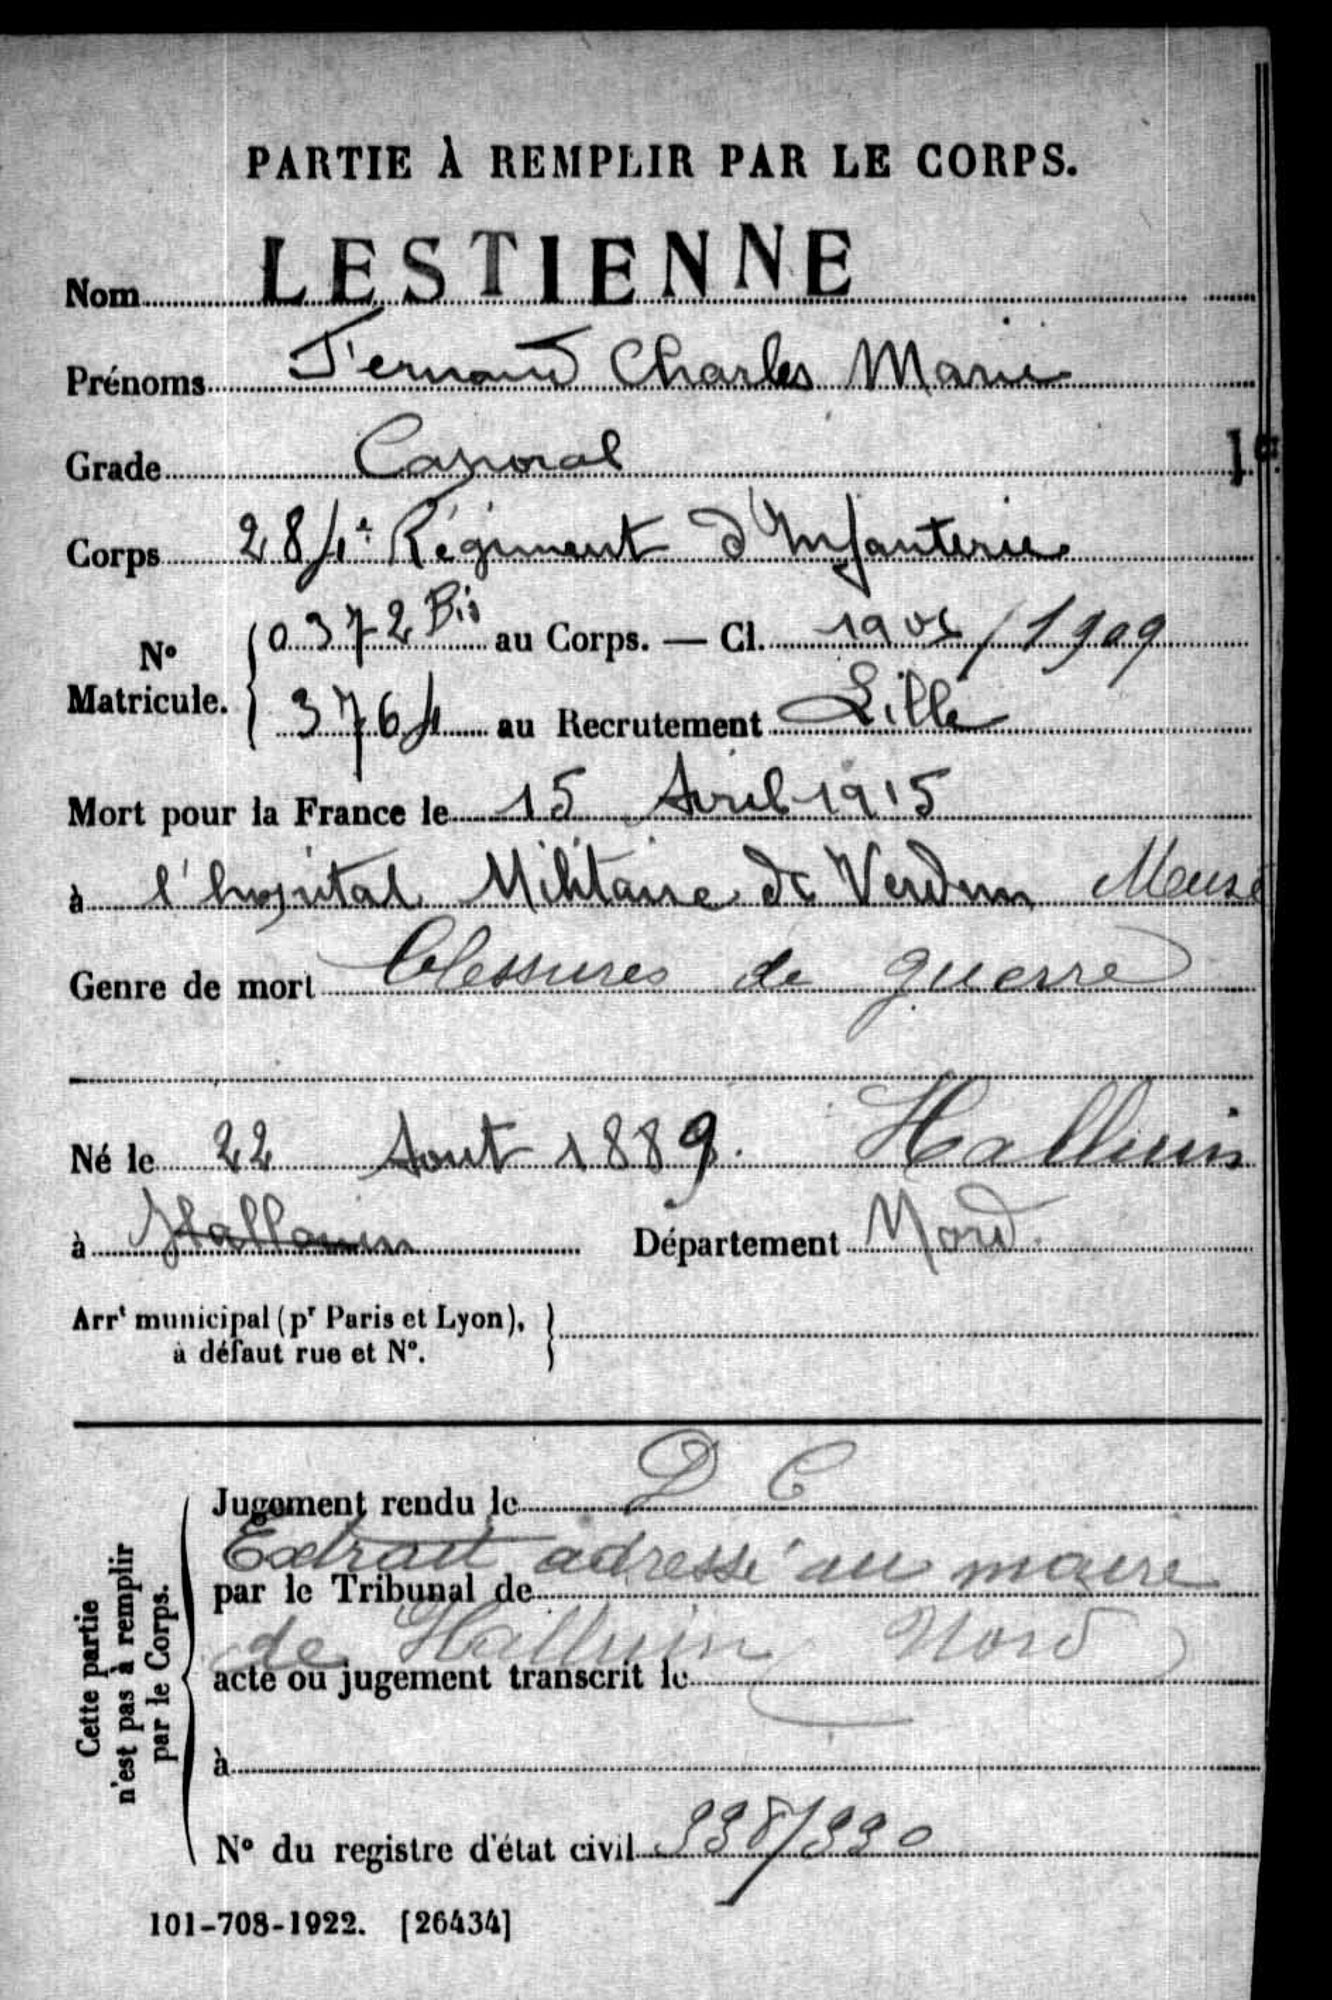 PARTIE À REMPLIR PAR LE CORPS.
Nom LESTIENNE
Prénoms Fernand Charles Marie
Grade Caporal
Corps 284e Régiment d'Infanterie
No Matricule. 0372 Bis au Corps. — Cl. / 1909
3764 au Recrutement Lille
Mort pour la France le 15 Avril 1915
à l'hopital Militaire de Verdun Meuse
Genre de mort blessures de guerre
Né le 22 Aout 1889. Halluin
à Hallouin Département Nord.
Arrt municipal (pr Paris et Lyon),
à défaut rue et No.
Cette partie
n'est pas à remplir
par le Corps.
Jugement rendu le D C
Extrait adressé au maire
par le Tribunal de
de Halluin Nord
acte ou jugement transcrit le
à
No du registre d'état civil
101-708-1922. [26434]